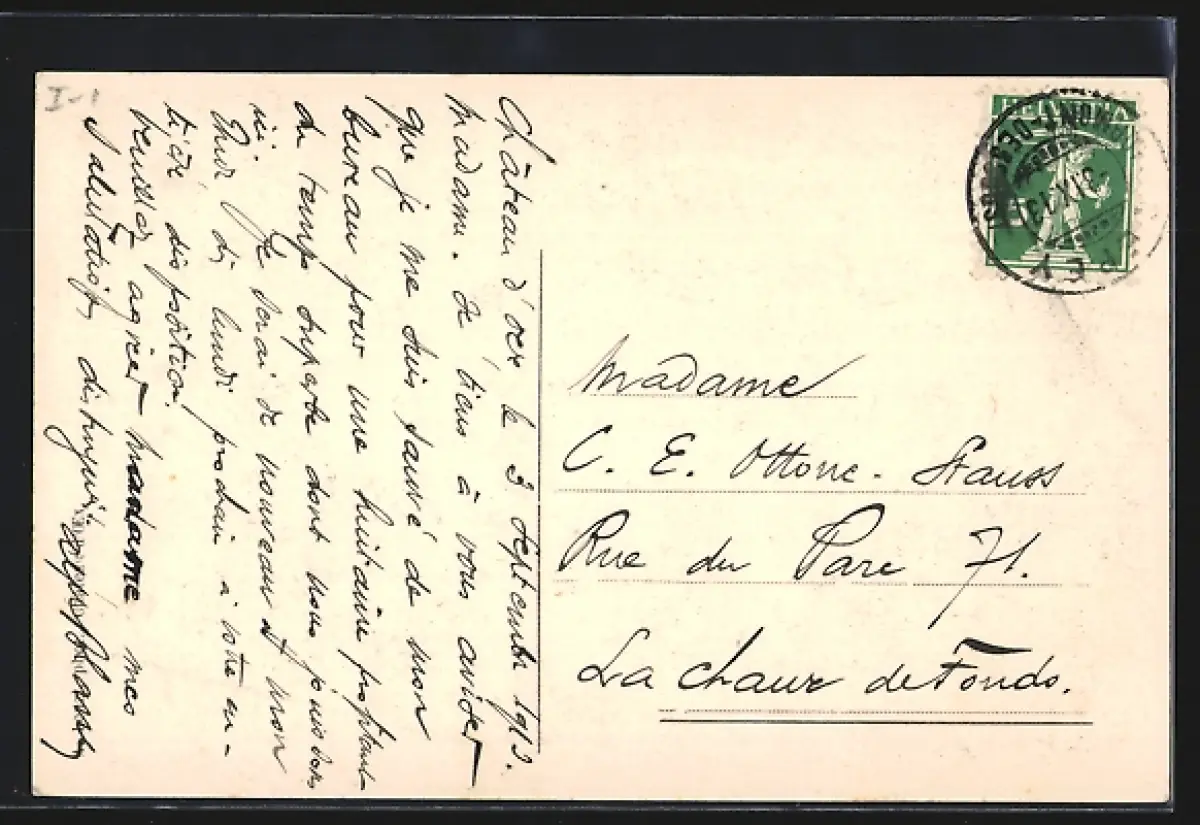 Château d'oex le 3 septembre 1913.
Madame. Je tiens à vous aviser
que je me suis sauvé de mon
bureau pour une huitaine profitant
du temps superbe dont nous jouissons
ici. Je serai de nouveau à mon
dès lundi prochain à votre en-
tière disposition.
Veuillez agréer Madame mes
salutations distinguées
Madame
C. E. Ottone-Stauss
Rue du Parc 71.
La Chaux de Fonds.
HELVETIA
MONT-
3.IX.13
I-1